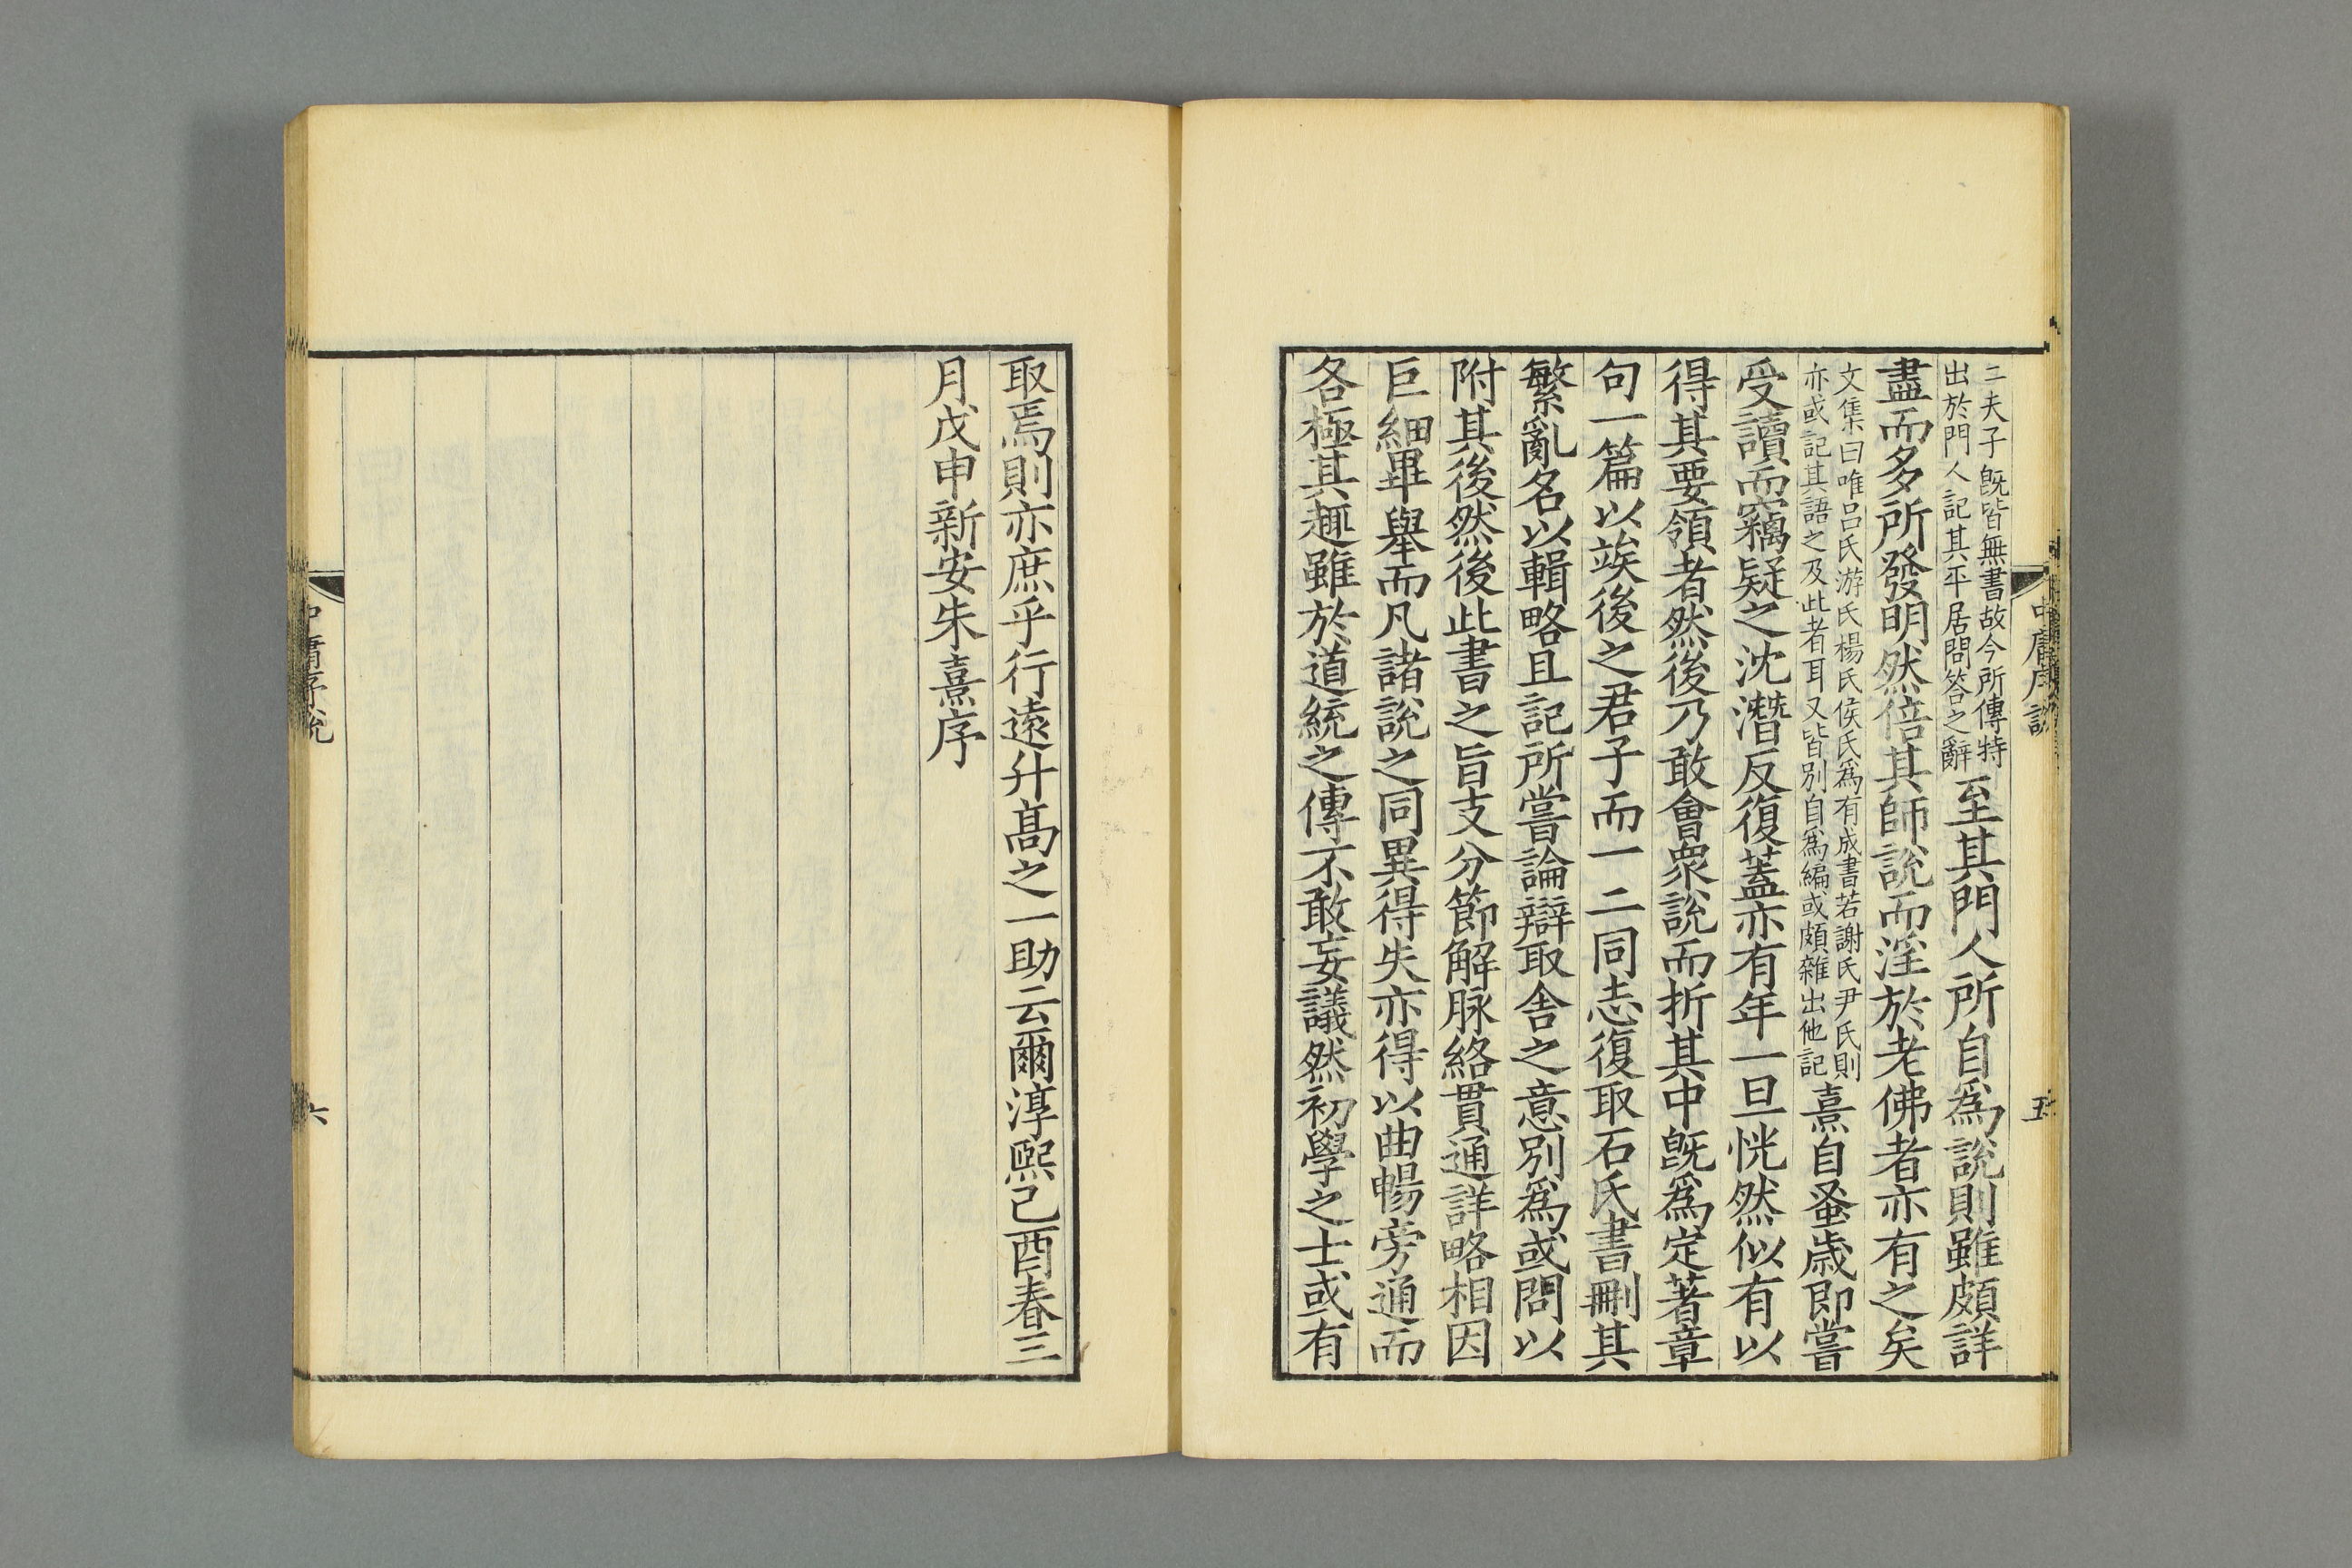 中庸序說
五
二夫子既皆無書故今所傳特
出於門人記其平居問答之辭
至其門人所自爲說則雖頗詳
盡而多所發明然倍其師說而淫於老佛者亦有之矣
文集曰唯呂氏游氏楊氏侯氏爲有成書若謝氏尹氏則
亦或記其語之及此者耳又皆別自爲編或頗雜出他記
熹自蚤歲即嘗
受讀而竊疑之沈潛反復蓋亦有年一旦恍然似有以
得其要領者然後乃敢會衆說而折其中旣爲定著章
句一篇以竢後之君子而一二同志復取石氏書刪其
繁亂名以輯略且記所嘗論辯取舍之意別爲或問以
附其後然後此書之旨支分節解脉絡貫通詳略相因
巨細畢舉而凡諸說之同異得失亦得以曲暢旁通而
各極其趣雖於道統之傳不敢妄議然初學之士或有
取焉則亦庶乎行遠升髙之一助云爾淳熙己酉春三
月戊申新安朱熹序
中庸序說
六